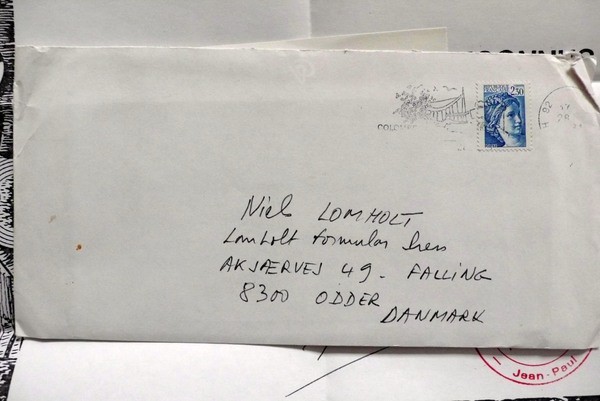 2,30
COLOM
92
Niels LOMHOLT
Lomholt Formular Press
AKJÆRVEJ 49. FALLING
8300 ODDER
DANMARK
Jean-Paul